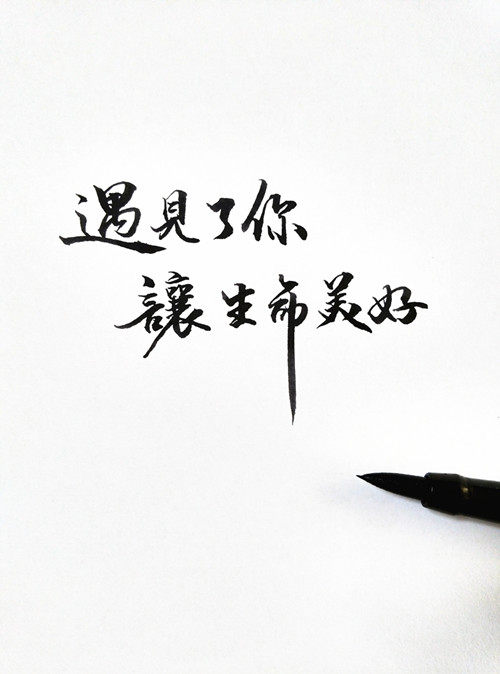 遇見了你
讓生命美好